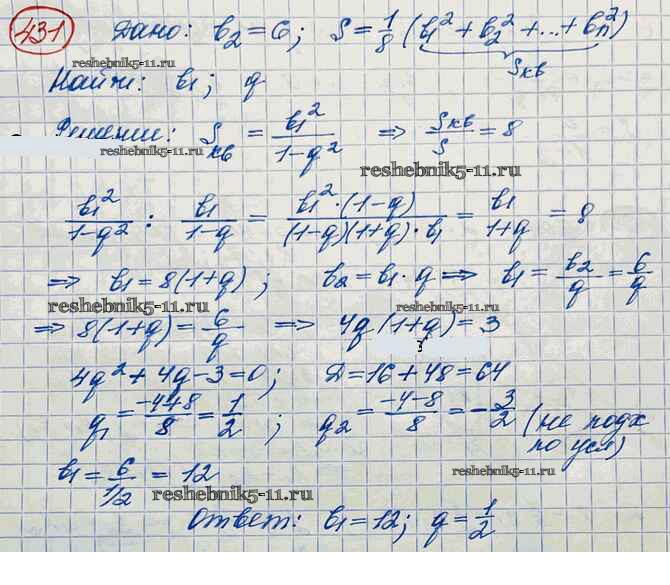 431 Дано: b₂ = 6; S = 1/8 (b₁² + b₂² + ... + bₙ²)
Sкв
reshebnik5-11.ru
Найти: b₁; q
Решение: Sкв = b₁²/(1-q²) => Sкв/S = 8
reshebnik5-11.ru
reshebnik5-11.ru
b₁²/(1-q²) : b₁/(1-q) = b₁²·(1-q)/((1-q)(1+q)·b₁) = b₁/(1+q) = 8
=> b₁ = 8(1+q); b₂ = b₁·q => b₁ = b₂/q = 6/q
reshebnik5-11.ru
reshebnik5-11.ru
=> 8(1+q) = 6/q => 4q(1+q) = 3
4q² + 4q - 3 = 0; D = 16 + 48 = 64
q₁ = (-4+8)/8 = 1/2; q₂ = (-4-8)/8 = -3/2 (не подх
по усл)
b₁ = 6/1/2 = 12
reshebnik5-11.ru
reshebnik5-11.ru
Ответ: b₁ = 12; q = 1/2